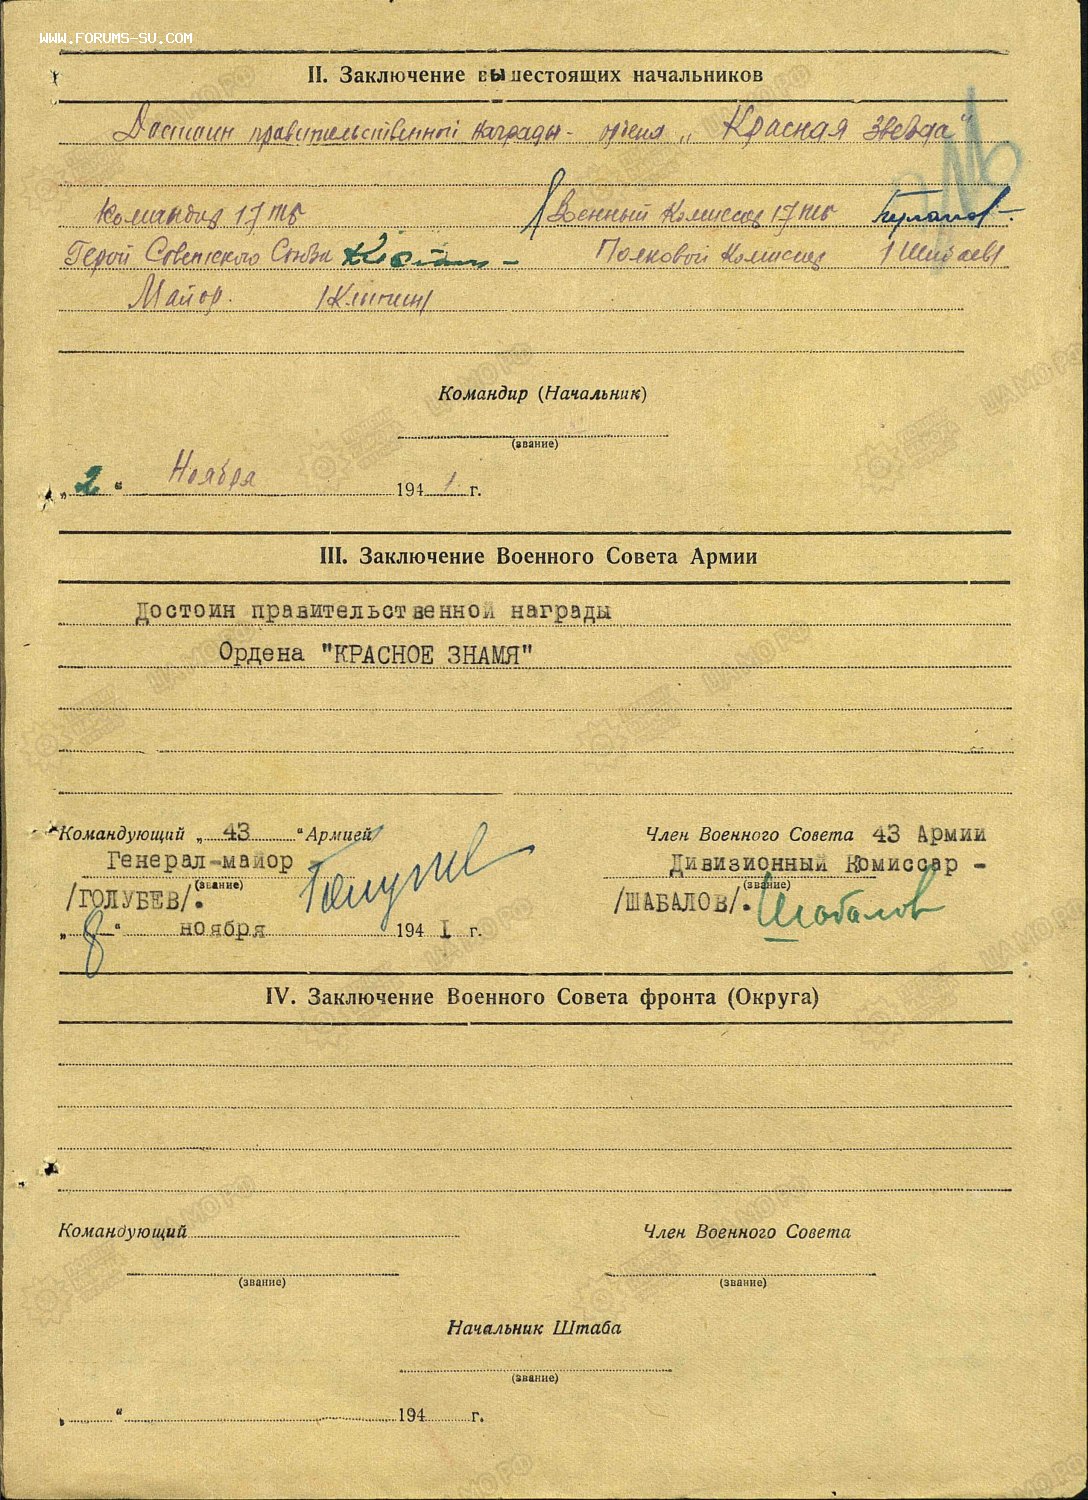 WWW.FORUMS-SU.COM
II. Заключение вышестоящих начальников
Достоин правительственной награды - ордена „Красная Звезда"
Командир 17 тб Военный Комиссар 17 тб
Герой Советского Союза Полковой Комиссар
Майор. /Клыпин/
Командир (Начальник)
(звание)
„2“ Ноября 1941 г.
III. Заключение Военного Совета Армии
Достоин правительственной награды
Ордена "КРАСНОЕ ЗНАМЯ"
Командующий „43“ Армией Член Военного Совета 43 Армии
Генерал-майор - Дивизионный Комиссар -
(звание) (звание)
/ГОЛУБЕВ/. Голубев /ШАБАЛОВ/. Шабалов
„8“ ноября 194I г.
IV. Заключение Военного Совета фронта (Округа)
Командующий Член Военного Совета
(звание) (звание)
Начальник Штаба
(звание)
„ “ 194 г.
ЦАМО РФ